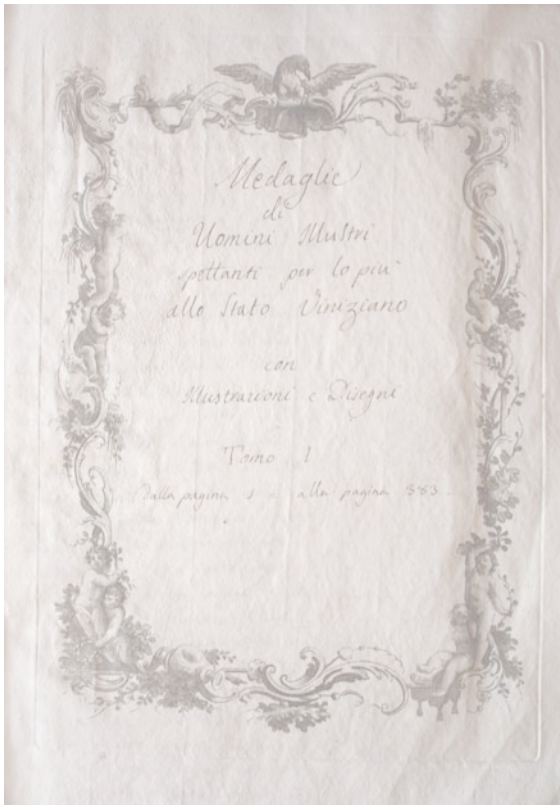 Medaglie
di
Uomini Illustri
spettanti per lo più
allo Stato Viniziano
con
Illustrazioni e Disegni
Tomo I
Dalla pagina 1 alla pagina 383.